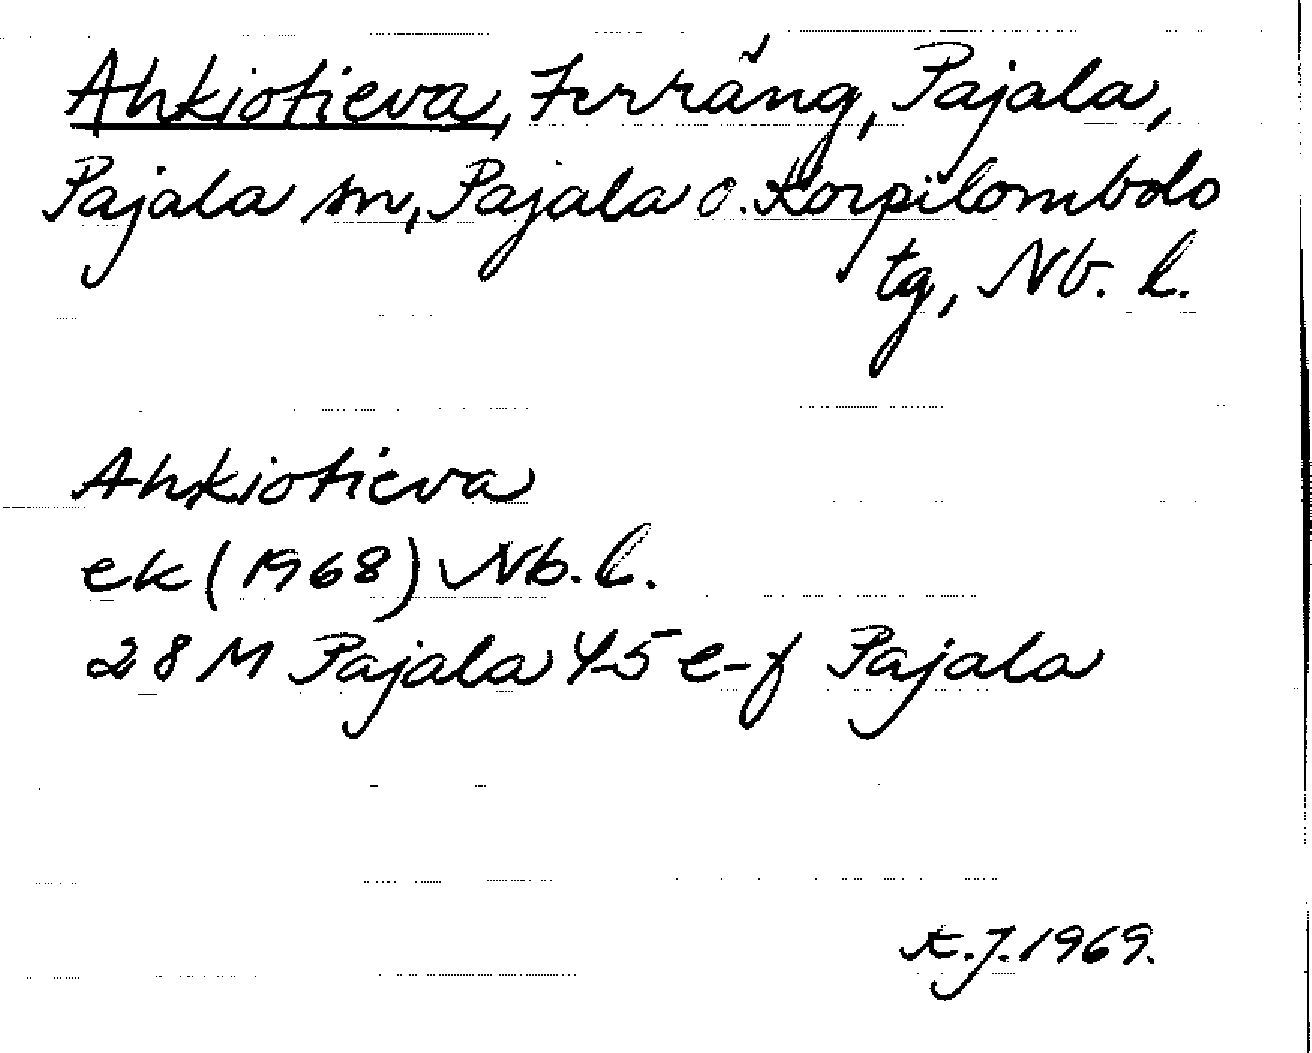 Ahkiotieva, Terräng, Pajala,
Pajala sn, Pajala o. Korpilombolo
tg, Nb. l.
Ahkiotieva
ek (1968) Nb. l.
28 M Pajala Y5 e-f Pajala
K.J. 1969.